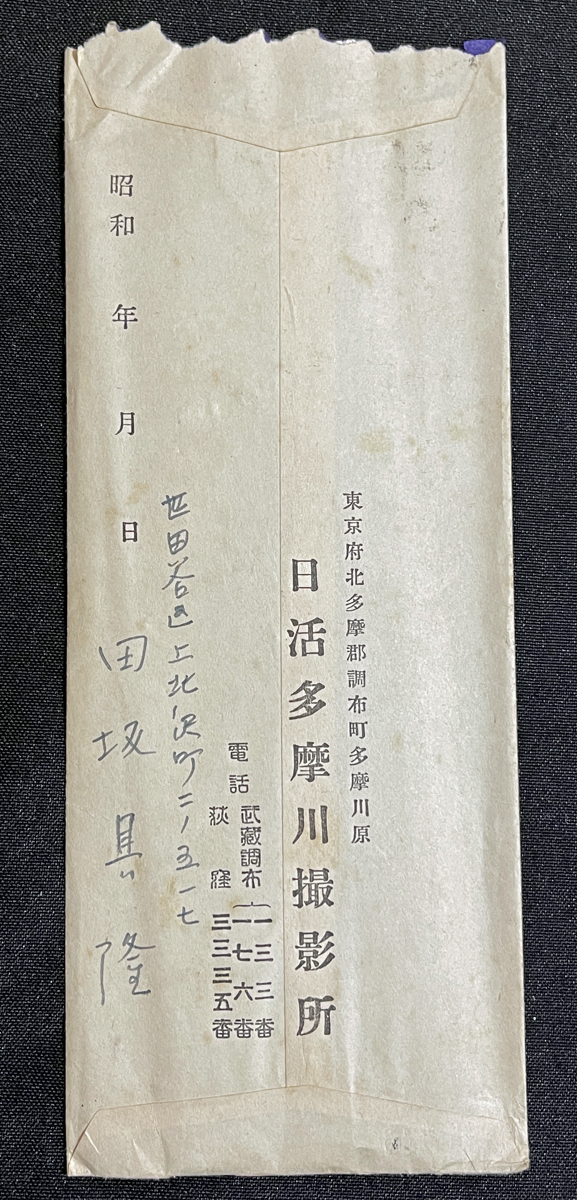 東京府北多摩郡調布町多摩川原
日活多摩川撮影所
電話
武蔵調布
一三三番
一七六番
荻窪
三三三五番
世田谷区上北沢町二ノ五一七
昭和 年 月 日
田坂具隆